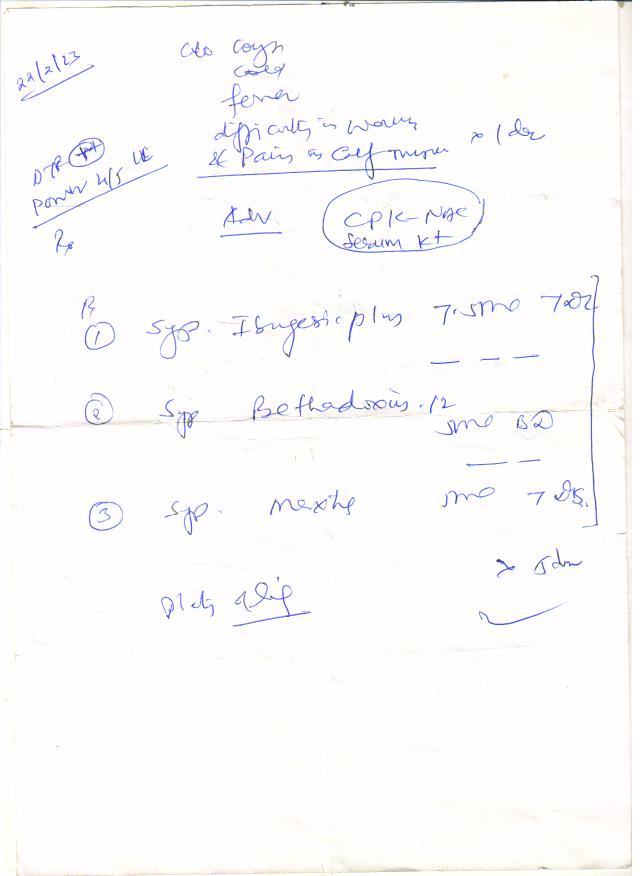 22/2/23
c/o Cough
cold
fever
difficulty in
& Pain in Calf muscle x 1 day
DTR ++
Power 4/5 LL
Adv. CPK-NAC
Serum K+
Rx
Rx
① Syp. Ibugesic plus 7.5ml TDS
② Syp Bethadoxin-12 5ml BD
③ Syp. 5ml TDS.
x 5 day
Plenty